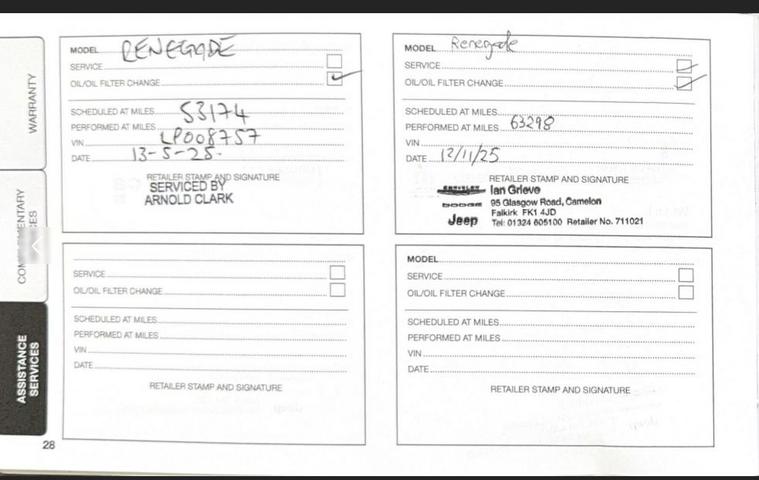 WARRANTY
COMPLEMENTARY
ASSISTANCE SERVICES
MODEL RENEGADE
SERVICE
OIL/OIL FILTER CHANGE
SCHEDULED AT MILES 53174
PERFORMED AT MILES
VIN LP008757
DATE 13-5-25.
RETAILER STAMP AND SIGNATURE
SERVICED BY
ARNOLD CLARK
MODEL Renegade
SERVICE
OIL/OIL FILTER CHANGE
SCHEDULED AT MILES
PERFORMED AT MILES 63298
VIN
DATE 12/11/25
RETAILER STAMP AND SIGNATURE
CHRYSLER Ian Grieve
DODGE 95 Glasgow Road, Camelon
Falkirk FK1 4JD
Jeep Tel: 01324 605100 Retailer No. 711021
SERVICE
OIL/OIL FILTER CHANGE
SCHEDULED AT MILES
PERFORMED AT MILES
VIN
DATE
RETAILER STAMP AND SIGNATURE
MODEL
SERVICE
OIL/OIL FILTER CHANGE
SCHEDULED AT MILES
PERFORMED AT MILES
VIN
DATE
RETAILER STAMP AND SIGNATURE
28